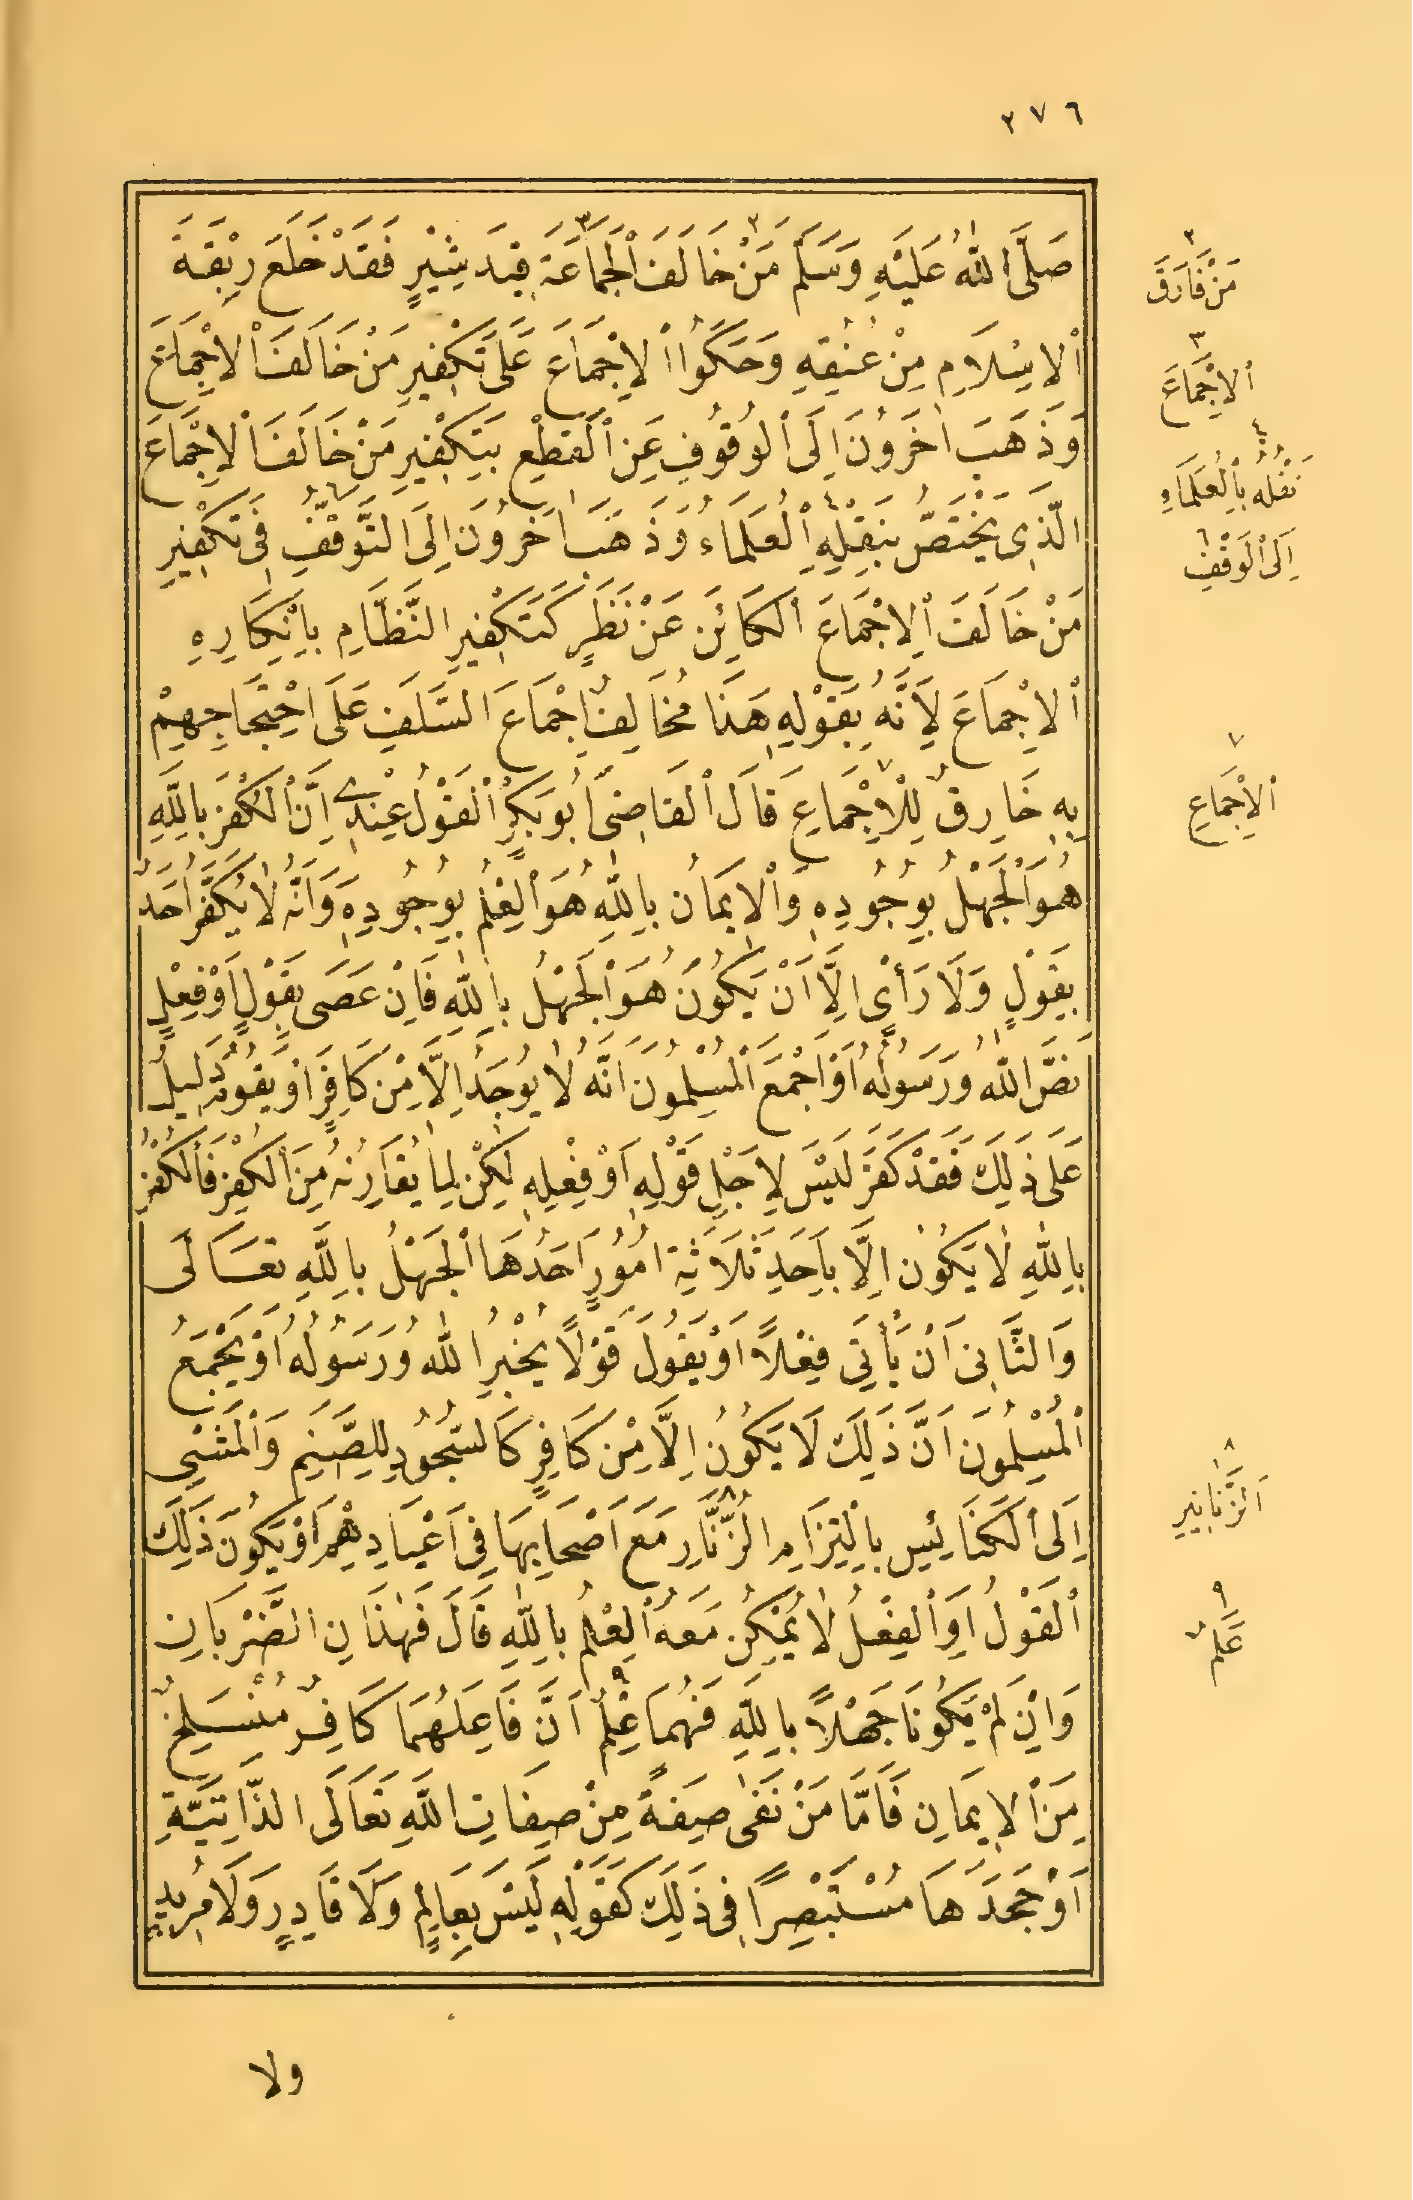 ٢٧٦
صَلَّى اللهُ عَلَيْهِ وَسَلَّمَ مَنْ خَالَفَ الْجَمَاعَةَ قِيدَ شِبْرٍ فَقَدْ خَلَعَ رِبْقَةَ
الْاِسْلَامِ مِنْ عُنُقِهِ وَحَكَوُا الْاِجْمَاعَ عَلَى تَكْفِيرِ مَنْ خَالَفَ الْاِجْمَاعَ
وَذَهَبَ اٰخَرُونَ اِلَى الْوُقُوفِ عَنِ الْقَطْعِ بِتَكْفِيرِ مَنْ خَالَفَ الْاِجْمَاعَ
الَّذِى يَخْتَصُّ بِنَقْلِهِ الْعُلَمَاءُ وَذَهَبَ اٰخَرُونَ اِلَى التَّوَقُّفِ فِى تَكْفِيرِ
مَنْ خَالَفَ الْاِجْمَاعَ الْكَائِنَ عَنْ نَظَرٍ كَتَكْفِيرِ النَّظَّامِ بِاِنْكَارِهِ
الْاِجْمَاعَ لِاَنَّهُ بِقَوْلِهِ هَذَا مُخَالِفٌ اِجْمَاعَ السَّلَفِ عَلَى احْتِجَاجِهِمْ
بِهِ خَارِقٌ لِلْاِجْمَاعِ قَالَ الْقَاضِى اَبُو بَكْرٍ الْقَوْلُ عِنْدِى اِنَّ الْكُفْرَ بِاللّٰهِ
هُوَ الْجَهْلُ بِوُجُودِهِ وَالْاِيمَانُ بِاللّٰهِ هُوَ الْعِلْمُ بِوُجُودِهِ وَاَنَّهُ لَا يُكَفَّرُ اَحَدٌ
بِقَوْلٍ وَلَا رَأْىٍ اِلَّا اَنْ يَكُونَ هُوَ الْجَهْلُ بِاللّٰهِ فَاِنْ عَصَى بِقَوْلٍ اَوْ فِعْلٍ
نَصَّ اللهُ وَرَسُولُهُ اَوْ اَجْمَعَ الْمُسْلِمُونَ اَنَّهُ لَا يُوجَدُ اِلَّا مِنْ كَافِرٍ اَوْ يَقُومُ دَلِيلٌ
عَلَى ذٰلِكَ فَقَدْ كَفَرَ لَيْسَ لِاَجْلِ قَوْلِهِ اَوْ فِعْلِهِ لٰكِنْ لِمَا يُقَارِنُهُ مِنَ الْكُفْرِ فَالْكُفْرُ
بِاللّٰهِ لَا يَكُونُ اِلَّا بِاَحَدِ ثَلَاثَةِ اُمُورٍ اَحَدُهَا الْجَهْلُ بِاللّٰهِ تَعَالَى
وَالثَّانِى اَنْ يَأْتِىَ فِعْلًا اَوْ يَقُولَ قَوْلًا يُخْبِرُ اللهُ وَرَسُولُهُ اَوْ يُجْمِعُ
الْمُسْلِمُونَ اَنَّ ذَلِكَ لَا يَكُونُ اِلَّا مِنْ كَافِرٍ كَالسُّجُودِ لِلصَّنَمِ وَالْمَشْىِ
اِلَى الْكَنَائِسِ بِالْتِزَامِ الزُّنَّارِ مَعَ اَصْحَابِهَا فِى اَعْيَادِهِمْ اَوْ يَكُونَ ذَلِكَ
الْقَوْلُ اَوِ الْفِعْلُ لَا يُمْكِنُ مَعَهُ الْعِلْمُ بِاللّٰهِ قَالَ فَهٰذَانِ الضَّرْبَانِ
وَاِنْ لَمْ يَكُونَا جَهْلًا بِاللّٰهِ فَهُمَا عِلْمٌ اَنَّ فَاعِلَهُمَا كَافِرٌ مُنْسَلِخٌ
مِنَ الْاِيمَانِ فَاَمَّا مَنْ نَفَى صِفَةً مِنْ صِفَاتِ اللّٰهِ تَعَالَى الذَّاتِيَّةِ
اَوْ جَحَدَهَا مُسْتَبْصِرًا فِى ذَلِكَ كَقَوْلِهِ لَيْسَ بِعَالِمٍ وَلَا قَادِرٍ وَلَا مُرِيدٍ
ولا
٢
مَنْ فَارَقَ
٣
الْاِجْمَاعَ
٤
نَقْلُهُ بِالْعُلَمَاءِ
٦
اِلَى الْوَقْفِ
٧
الْاِجْمَاعِ
٨
الزَّنَانِيرِ
٩
عَلَمٌ